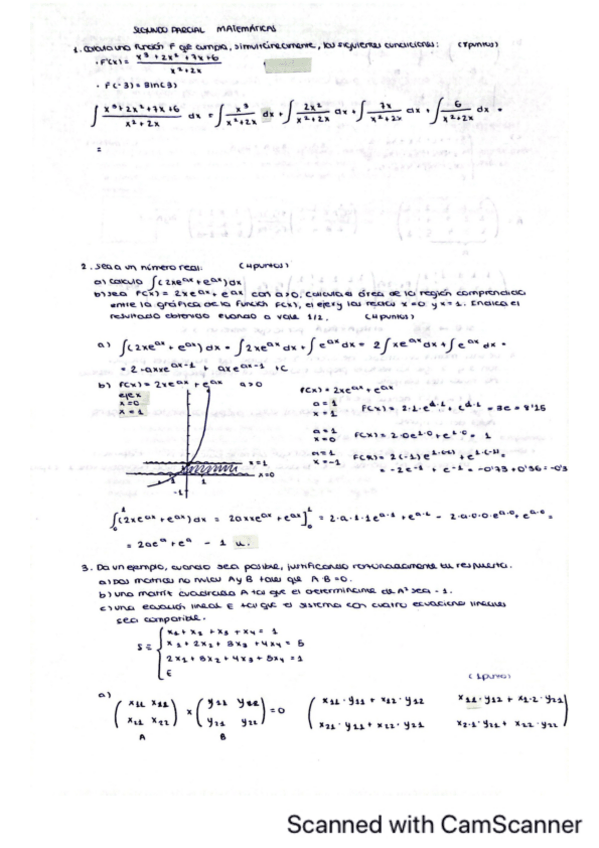 SEGUNDO PARCIAL MATEMÁTICAS
1. Calcula una función F que cumpla, simultáneamente, las siguientes condiciones: (1 puntos)
· F'(x) = x³ + 2x² + 7x + 6 / x² + 2x
· F(-3) =
∫ x³+2x²+7x+6 / x²+2x dx = ∫ x³ / x²+2x dx + ∫ 2x² / x²+2x dx + ∫ 7x / x²+2x dx + ∫ 6 / x²+2x dx =
=
2. Sea a un número real: (4 puntos)
a) Calcula ∫(2xe^ax + e^ax) dx
b) Sea F(x) = 2xe^ax + e^ax con a>0. Calcula el área de la región comprendida
entre la gráfica de la función F(x), el eje x y las rectas x=0 y x=1. Indica el
resultado obtenido cuando a vale 1/2. (4 puntos)
a) ∫(2xe^ax + e^ax) dx = ∫2xe^ax dx + ∫e^ax dx = 2∫xe^ax dx + ∫e^ax dx =
= 2·axxe^ax-1 + axe^ax-1 + C
b) F(x) = 2xe^ax + e^ax a>0
eje x
x=0
x=1
F(x) = 2xe^ax + e^ax
a=1
x=1
F(x) = 2·1·e^1·1 + e^1·1 = 3e = 8'15
a=1
x=0
F(x) = 2·0e^1·0 + e^1·0 = 1
a=1
x=-1
F(x) = 2(-1)e^1·(-1) + e^1·(-1) =
= -2e^-1 + e^-1 = -0'73 + 0'36 = -0'3
x=1
x=0
-1
1
-1
∫(2xe^ax + e^ax) dx = 2axxe^ax + e^ax]₀¹ = 2·a·1·1e^a·1 + e^a·1 - 2·a·0·0·e^a·0 + e^a·0 =
= 2ae^a + e^a - 1 u.
3. Da un ejemplo, cuando sea posible, justificando razonadamente tu respuesta.
a) Dos matrices no nulas A y B tales que A·B=0.
b) Una matriz cuadrada A tal que el determinante de A² sea -1.
c) Una ecuación lineal E tal que el sistema con cuatro ecuaciones lineales
sea compatible.
S = { x₁ + x₂ + x₃ + x₄ = 1
x₁ + 2x₂ + 3x₃ + 4x₄ = 5
2x₁ + 3x₂ + 4x₃ + 5x₄ = 1
E
(1 punto)
a)
(x₁₁ x₁₂) x (y₁₁ y₁₂) = 0 (x₁₁·y₁₁ + x₁₂·y₁₂ x₁₁·y₁₂ + x₁·₂·y₂₁)
(x₂₁ x₂₂) (y₂₁ y₂₂) (x₂₁·y₁₁ + x₂₂·y₂₁ x₂·₁·y₂₁ + x₂₂·y₂₂)
A B
Scanned with CamScanner